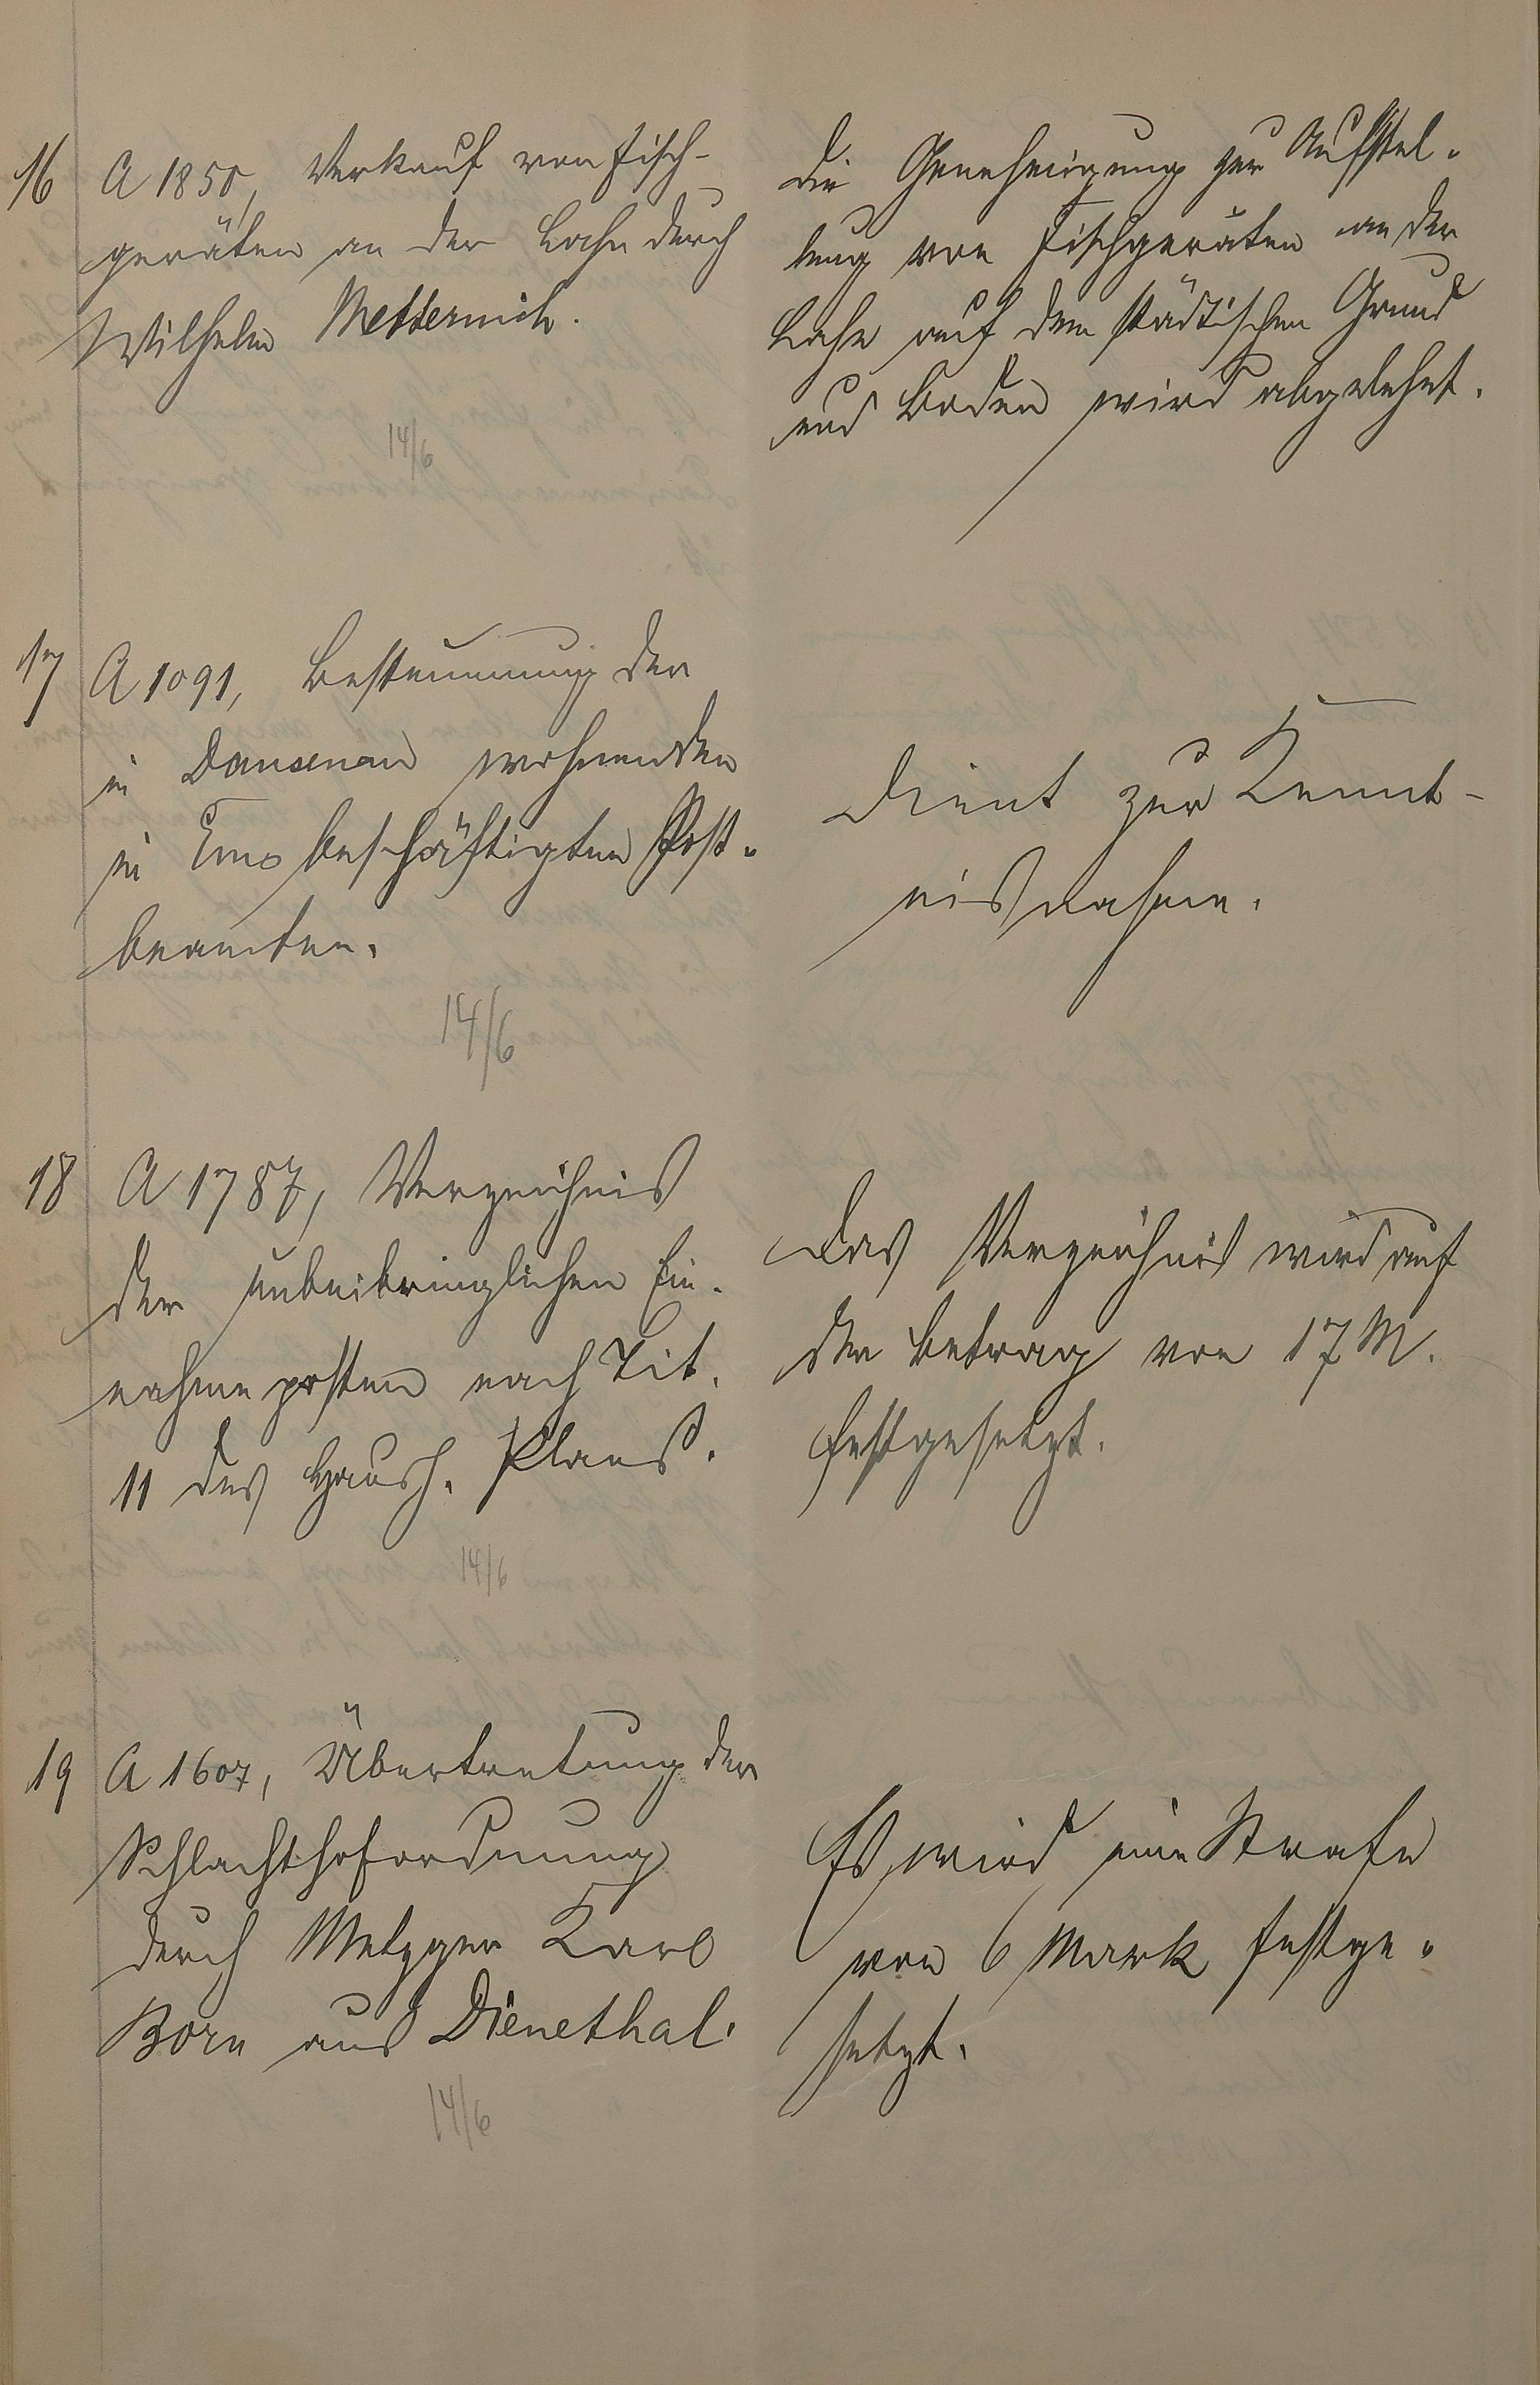 16 A 1850, Verkauf von Fisch-
geräten an der Lahn durch
Wilhelm Metternich.
14/6
Die Genehmigung zur Aufstel-
lung von Fischgeräten an der
Lahn auf dem städtischen Grund
und Boden wird abgelehnt.
17 A 1091, Besteuerung der
in Dausenau wohnenden
in Ems beschäftigten Post-
beamten.
14/6
Dient zur Kennt-
nisnahme.
18 A 1787, Verzeichnis
der unbeibringlichen Ein-
nahmeposten nach Tit.
11 des Haush. Plans.
14/6
Das Verzeichnis wird auf
den Betrag von 17 M.
festgesetzt.
19 A 1607, Übertretung der
Schlachthofordnung
durch Metzger Karl
Born aus Dienethal.
14/6
Es wird eine Strafe
von 6 Mark festge-
setzt.